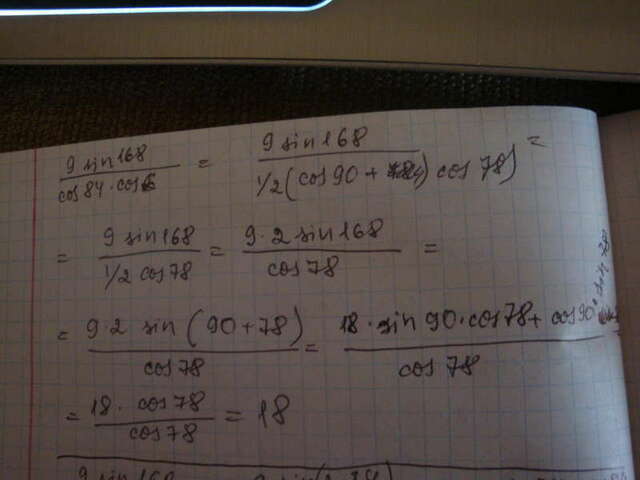 9 sin 168 / cos 84 · cos 6 = 9 sin 168 / 1/2 (cos 90 + cos 78) =
= 9 sin 168 / 1/2 cos 78 = 9 · 2 sin 168 / cos 78 =
= 9 · 2 sin (90 + 78) / cos 78 = 18 · sin 90 · cos 78 + cos 90 · sin 78 / cos 78
= 18 · cos 78 / cos 78 = 18